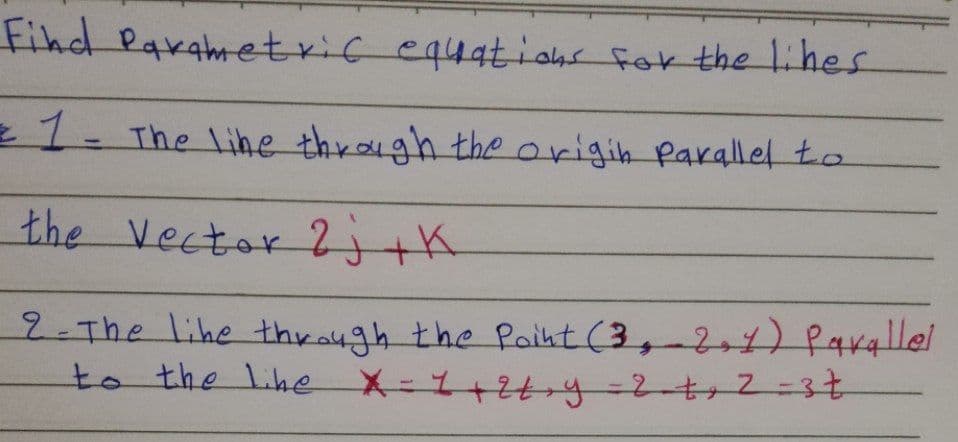 Find Parametric equations for the lines
1- The line through the origin parallel to
the Vector 2j+K
2-The line through the Point (3,-2,1) Parallel
to the line X=1+2t,y=2-t,Z=3t